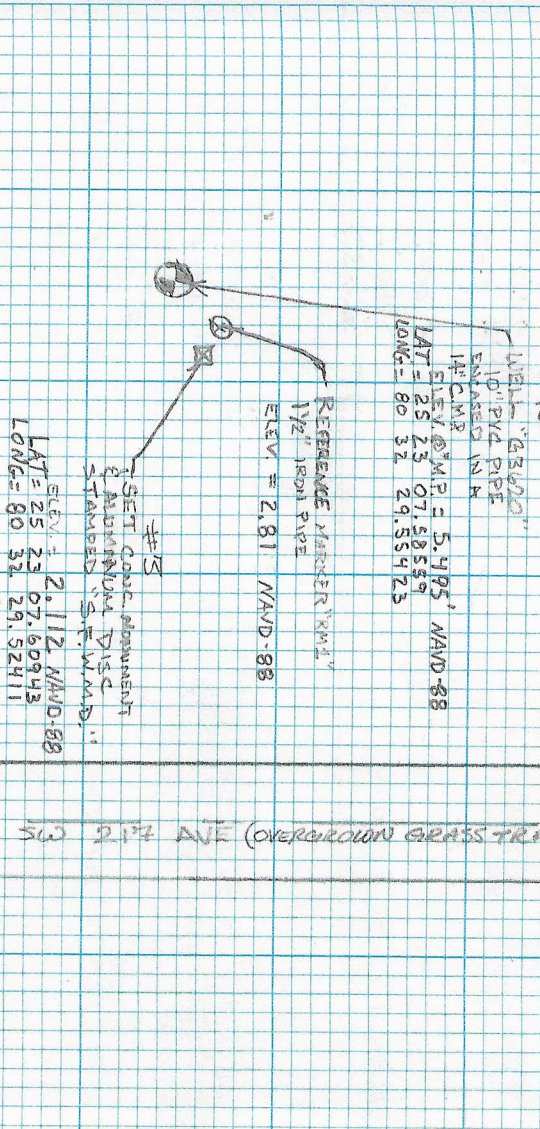 WELL "G3620"
10" PVC PIPE
ENCASED IN A
14" C.M.P
ELEV @ M.P. = 5.495' NAVD-88
LAT = 25 23 07.58559
LONG = 80 32 29.55423
REFERENCE MARKER "RM1"
1 1/2" IRON PIPE
ELEV = 2.81 NAVD-88
#3
SET CONC. MONUMENT
& ALUMINUM DISC
STAMPED "S.F.W.M.D."
ELEV. = 2.112 NAVD-88
LAT = 25 23 07.60943
LONG = 80 32 29.52411
SW 217 AVE (OVERGROWN GRASS TRA